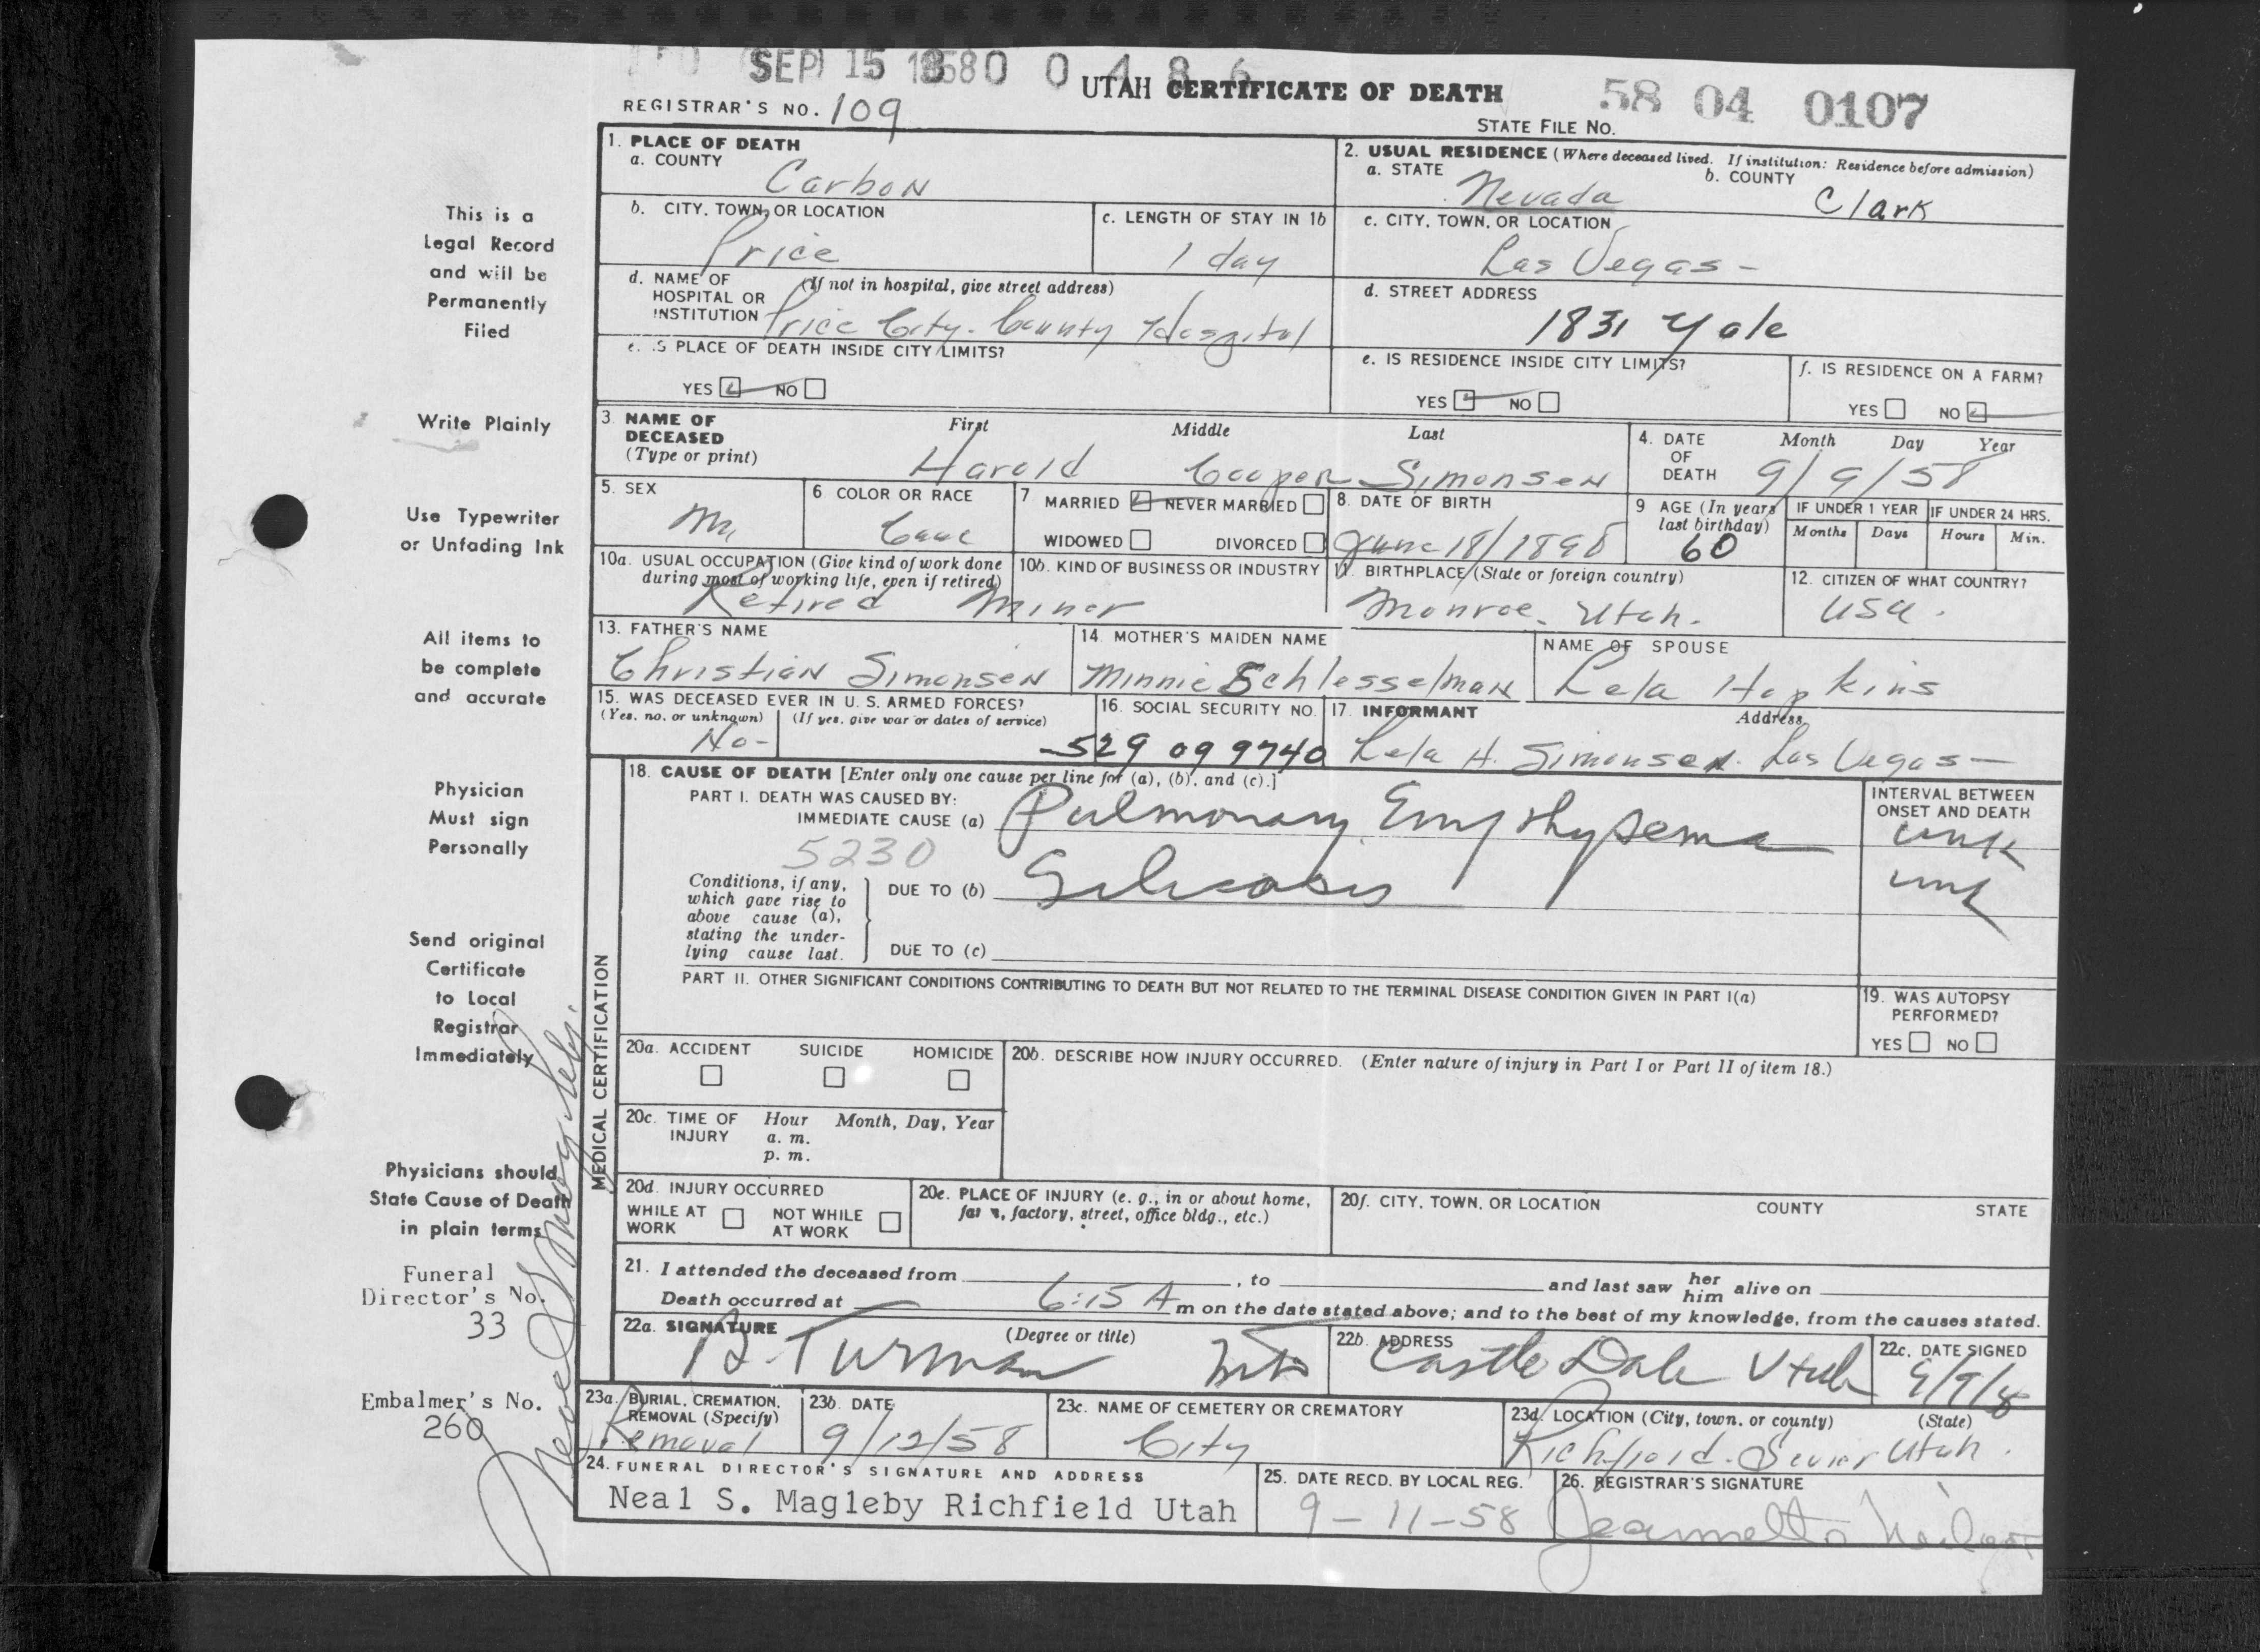 SEP 15 1958 0 0 4 8 6
UTAH CERTIFICATE OF DEATH
58 04 0107
REGISTRAR'S NO. 109
STATE FILE NO.
1. PLACE OF DEATH
a. COUNTY
Carbon
2. USUAL RESIDENCE (Where deceased lived. If institution: Residence before admission)
a. STATE
Nevada
b. COUNTY
Clark
b. CITY, TOWN, OR LOCATION
Price
c. LENGTH OF STAY IN 1b
1 day
c. CITY, TOWN, OR LOCATION
Las Vegas -
d. NAME OF HOSPITAL OR INSTITUTION
(If not in hospital, give street address)
Price City-County Hospital
d. STREET ADDRESS
1831 Yale
e. IS PLACE OF DEATH INSIDE CITY LIMITS?
YES NO
e. IS RESIDENCE INSIDE CITY LIMITS?
YES NO
f. IS RESIDENCE ON A FARM?
YES NO
3. NAME OF DECEASED (Type or print)
First Middle Last
Harold Cooper Simonsen
4. DATE OF DEATH
Month Day Year
9/9/58
5. SEX
M
6 COLOR OR RACE
Cauc
7 MARRIED NEVER MARRIED
WIDOWED DIVORCED
8. DATE OF BIRTH
June 18/1898
9 AGE (In years last birthday)
60
IF UNDER 1 YEAR
Months Days
IF UNDER 24 HRS.
Hours Min.
10a. USUAL OCCUPATION (Give kind of work done during most of working life, even if retired)
Retired Miner
10b. KIND OF BUSINESS OR INDUSTRY
11. BIRTHPLACE (State or foreign country)
Monroe, Utah.
12. CITIZEN OF WHAT COUNTRY?
USA.
13. FATHER'S NAME
Christian Simonsen
14. MOTHER'S MAIDEN NAME
Minnie Schlesselman
NAME OF SPOUSE
Lela Hopkins
15. WAS DECEASED EVER IN U. S. ARMED FORCES?
(Yes, no, or unknown) (If yes, give war or dates of service)
No-
16. SOCIAL SECURITY NO.
529 09 9740
17. INFORMANT Address
Lela H. Simonsen. Las Vegas -
MEDICAL CERTIFICATION
18. CAUSE OF DEATH [Enter only one cause per line for (a), (b), and (c).]
PART I. DEATH WAS CAUSED BY:
IMMEDIATE CAUSE (a) Pulmonary Emphysema
5230
INTERVAL BETWEEN ONSET AND DEATH
unk
Conditions, if any, which gave rise to above cause (a), stating the underlying cause last.
DUE TO (b) Silicosis
unk
DUE TO (c)
PART II. OTHER SIGNIFICANT CONDITIONS CONTRIBUTING TO DEATH BUT NOT RELATED TO THE TERMINAL DISEASE CONDITION GIVEN IN PART I(a)
19. WAS AUTOPSY PERFORMED?
YES NO
20a. ACCIDENT SUICIDE HOMICIDE
20b. DESCRIBE HOW INJURY OCCURRED. (Enter nature of injury in Part I or Part II of item 18.)
20c. TIME OF INJURY Hour Month, Day, Year
a. m.
p. m.
20d. INJURY OCCURRED
WHILE AT WORK NOT WHILE AT WORK
20e. PLACE OF INJURY (e. g., in or about home, farm, factory, street, office bldg., etc.)
20f. CITY, TOWN, OR LOCATION COUNTY STATE
21. I attended the deceased from , to and last saw her him alive on
Death occurred at 6:15 A m on the date stated above; and to the best of my knowledge, from the causes stated.
22a. SIGNATURE (Degree or title)
B. Turman MD
22b. ADDRESS
Castle Dale Utah
22c. DATE SIGNED
9/9/8
23a. BURIAL, CREMATION, REMOVAL (Specify)
Removal
23b. DATE
9/12/58
23c. NAME OF CEMETERY OR CREMATORY
City
23d. LOCATION (City, town, or county) (State)
Richfield. Sevier Utah.
24. FUNERAL DIRECTOR'S SIGNATURE AND ADDRESS
Neal S. Magleby Richfield Utah
25. DATE RECD. BY LOCAL REG.
9-11-58
26. REGISTRAR'S SIGNATURE
This is a
Legal Record
and will be
Permanently
Filed
Write Plainly
Use Typewriter
or Unfading Ink
All items to
be complete
and accurate
Physician
Must sign
Personally
Send original
Certificate
to Local
Registrar
Immediately
Physicians should
State Cause of Death
in plain terms
Funeral
Director's No.
33
Embalmer's No.
260
Neal S Magleby